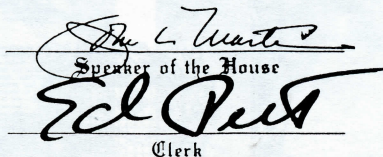 John L. Martin
Speaker of the House
Ed Pert
Clerk